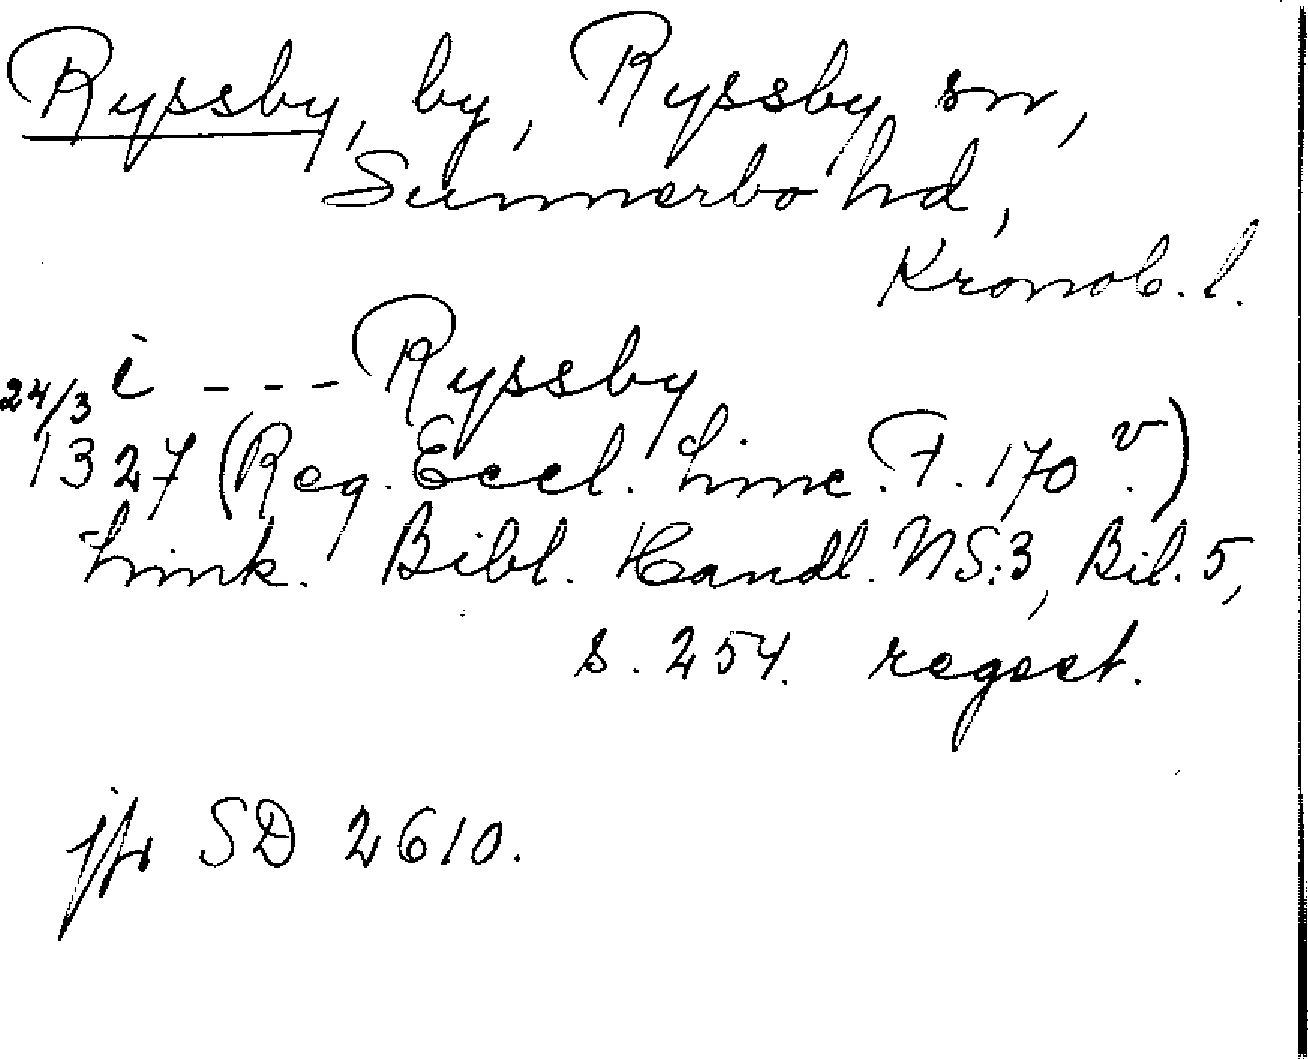 Ryssby, by, Ryssby sn,
Sunnerbo hd,
Kronob. l.
24/3 i - - - Ryssby
1327 (Reg. Eccl. Linc. F. 170 v.)
Link. Bibl. Handl. NS:3, Bil. 5,
s. 254. regest.
jfr SD 2610.